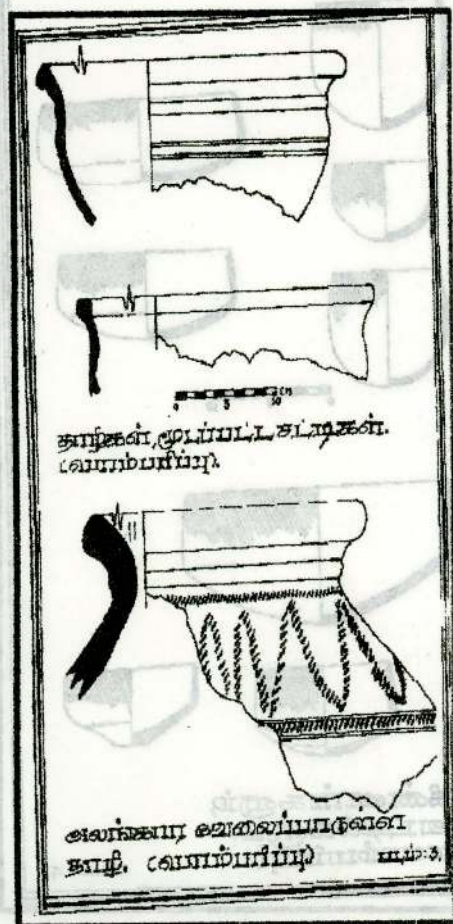 0 5 10 cm
தாழிகள், மூடப்பட்ட சட்டிகள்.
(பொம்பரிப்பு).
அலங்கார வேலைப்பாடுள்ள
தாழி. (பொம்பரிப்பு) படம்:3.